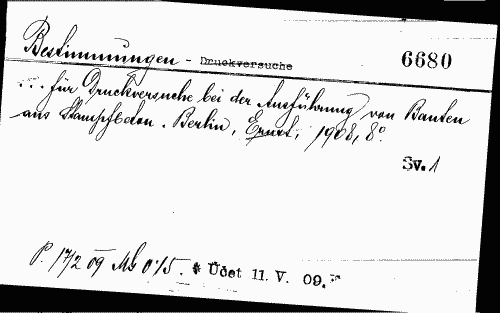 Bestimmungen - Druckversuche 6680
... für Druckversuche bei der Ausführung von Bauten
aus Stampfbeton. Berlin, Ernst, 1908, 8°.
Sv. 1
P. 17/2 09 Mk 0.15. * Účet 11. V. 09.